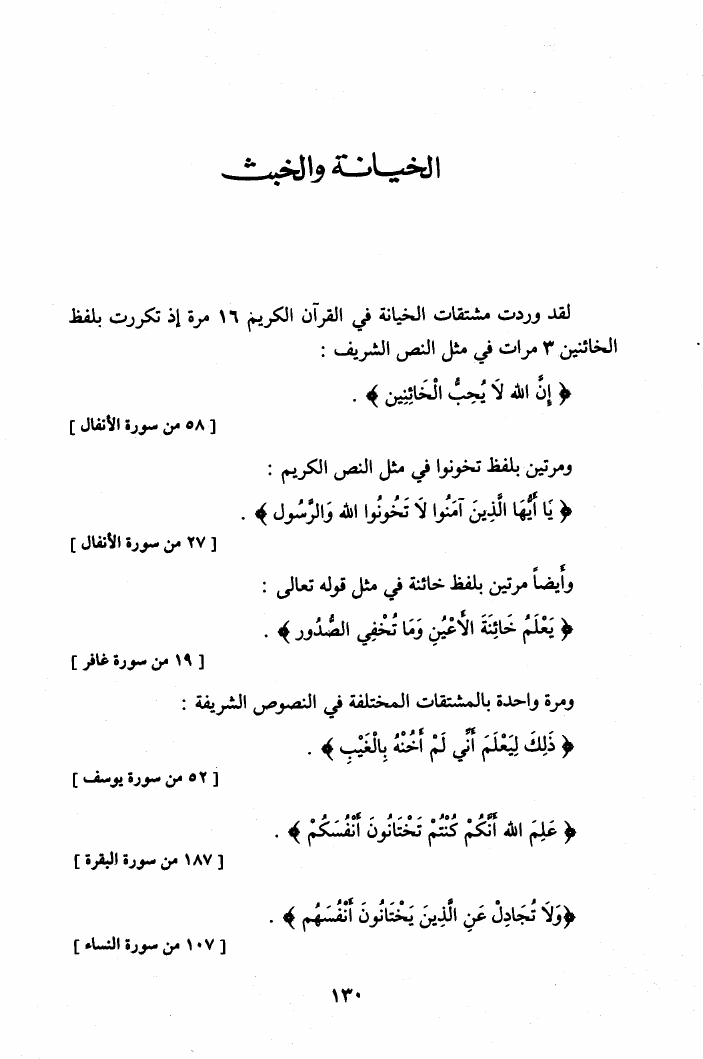 الخيانة والخبث
لقد وردت مشتقات الخيانة في القرآن الكريم ١٦ مرة إذ تكررت بلفظ
الخائنين ٣ مرات في مثل النص الشريف :
﴿ إِنَّ الله لاَ يُحِبُّ الْخَائِنِين ﴾ .
[ ٥٨ من سورة الأنفال ]
ومرتين بلفظ تخونوا في مثل النص الكريم :
﴿ يَا أَيُّهَا الَّذِينَ آمَنُوا لاَ تَخُونُوا الله وَالرَّسُول ﴾ .
[ ٢٧ من سورة الأنفال ]
وأيضاً مرتين بلفظ خائنة في مثل قوله تعالى :
﴿ يَعْلَمُ خَائِنَةَ الأَعْيُنِ وَمَا تُخْفِي الصُّدُور ﴾ .
[ ١٩ من سورة غافر ]
ومرة واحدة بالمشتقات المختلفة في النصوص الشريفة :
﴿ ذَلِكَ لِيَعْلَمَ أَنِّي لَمْ أَخُنْهُ بِالْغَيْبِ ﴾ .
[ ٥٢ من سورة يوسف ]
﴿ عَلِمَ الله أَنَّكُمْ كُنْتُمْ تَخْتَانُونَ أَنْفُسَكُمْ ﴾ .
[ ١٨٧ من سورة البقرة ]
﴿وَلاَ تُجَادِلْ عَنِ الَّذِينَ يَخْتَانُونَ أَنْفُسَهُم ﴾ .
[ ١٠٧ من سورة النساء ]
١٣٠